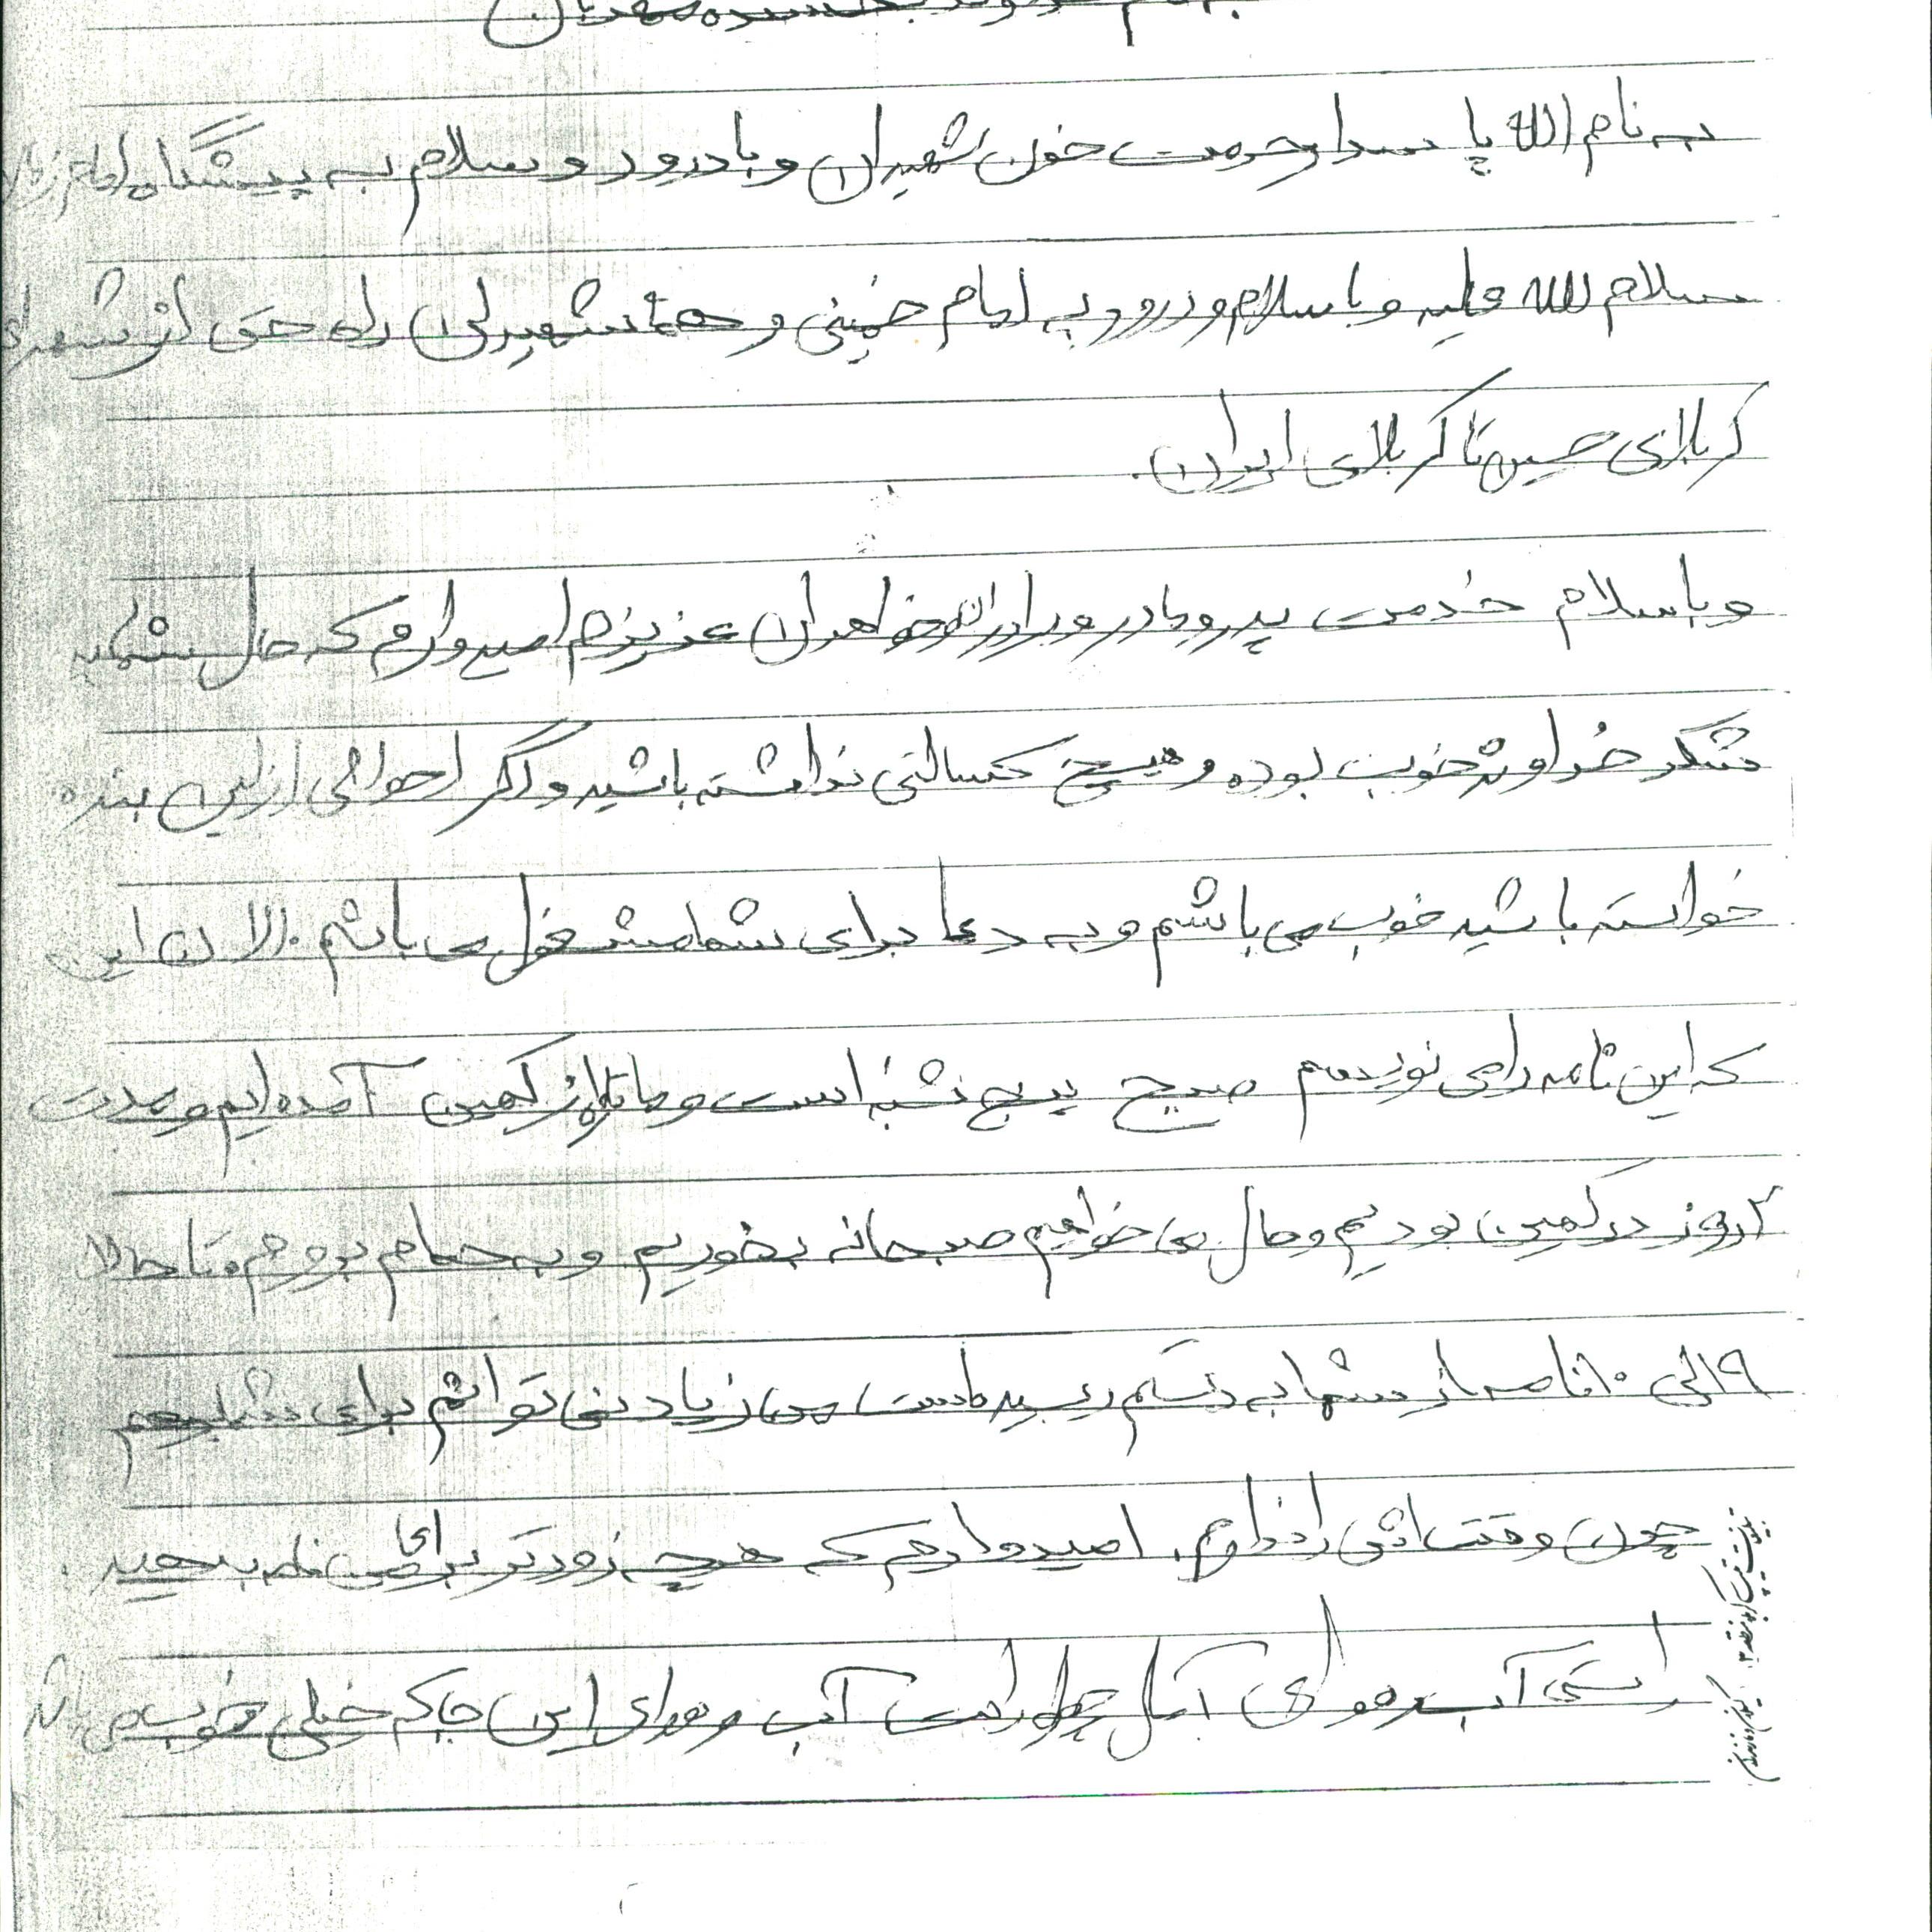 به نام خداوند بخشنده مهربان
به نام الله پاسدار حرمت خون شهیدان و با درود و سلام به پیشگاه امام زمان
سلام الله علیه و با سلام و درود به امام خمینی و همه شهیدان راه حق از شهدای
کربلای حسین تا کربلای ایران.
و با سلام خدمت پدر و مادر و برادران و خواهران عزیزم امیدوارم که حال شما به
شکر خداوند خوب بوده و هیچ کسالتی نداشته باشید و اگر احوالی از این بنده
خواسته باشید خوب می باشم و به دعا برای شما مشغول می باشم. الان این
که این نامه را می نویسم صبح پنج شنبه است و ما تازه از کمین آمده ایم و مدت
۲ روز در کمین بودیم و حال می خواهیم صبحانه بخوریم و به حمام بروم. تا حالا
۹ الی ۱۰ نامه از شما به دستم رسیده است من زیاد نمی توانم برای شما بدهم
چون وقت اش را ندارم. امیدوارم که هر چه زودتر برای من نامه بدهید.
راستی آب و هوای آمل چطور است آب و هوای این جا که خیلی خوب می باشد